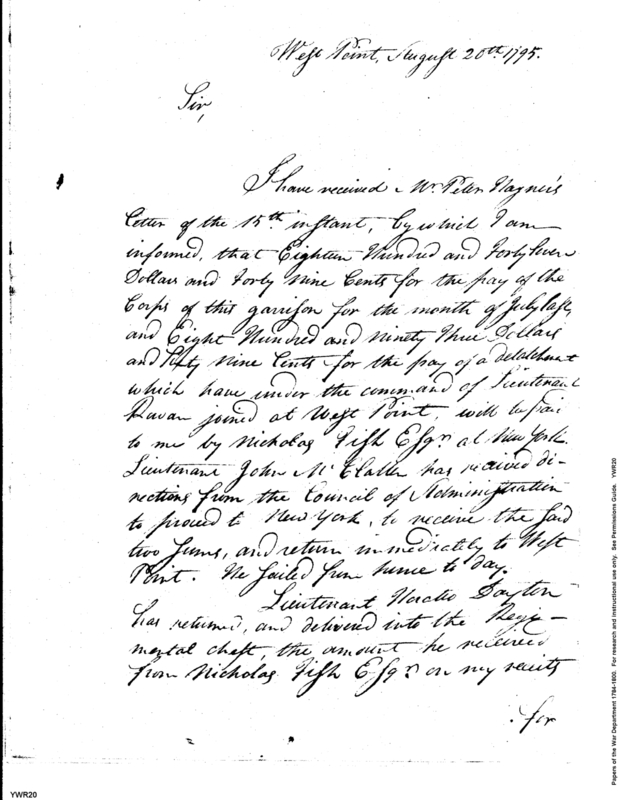 West Point, August 20th 1795.
Sir,
I have received Mr. Peter Hagner's
Letter of the 15th instant, by which I am
informed, that Eighteen Hundred and Forty seven
Dollars and Forty Nine Cents for the pay of the
Corps of this garrison for the month of July last,
and Eight Hundred and Ninety Three Dollars
and Fifty Nine Cents for the pay of a detachment
which have under the command of Lieutenant
joined at West Point will be paid
to me by Nicholas Fish Esqr. at New York.
Lieutenant John McClallen has received di-
rections from the Council of Administration
to proceed to New York, to receive the said
two sums, and return immediately to West
Point. He sailed from hence to day.
Lieutenant Horatio Dayton
has returned, and delivered into the Regi-
mental chest, the amount he received
from Nicholas Fish Esqr. on my receits
for
Papers of the War Department 1784-1800. For research and instructional use only. See Permissions Guide. YWR20
YWR20